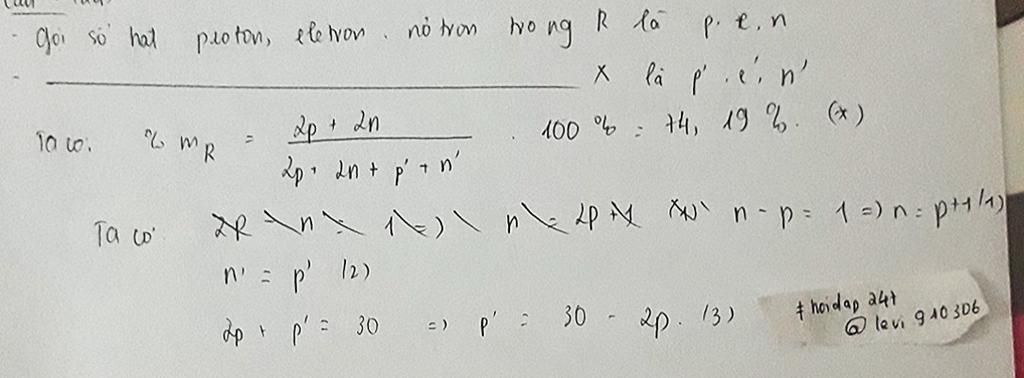 - Gọi số hạt proton, eletron, nơtron trong R là p, e, n
- ____________ X là p', e', n'
Ta có: % mR = (2p + 2n) / (2p + 2n + p' + n') . 100 % = 74, 19 %. (*)
Ta có n - p = 1 => n = p+1 (1)
n' = p' (2)
2p + p' = 30 => p' = 30 - 2p. (3)
# hoidap 247
@ levi 910306